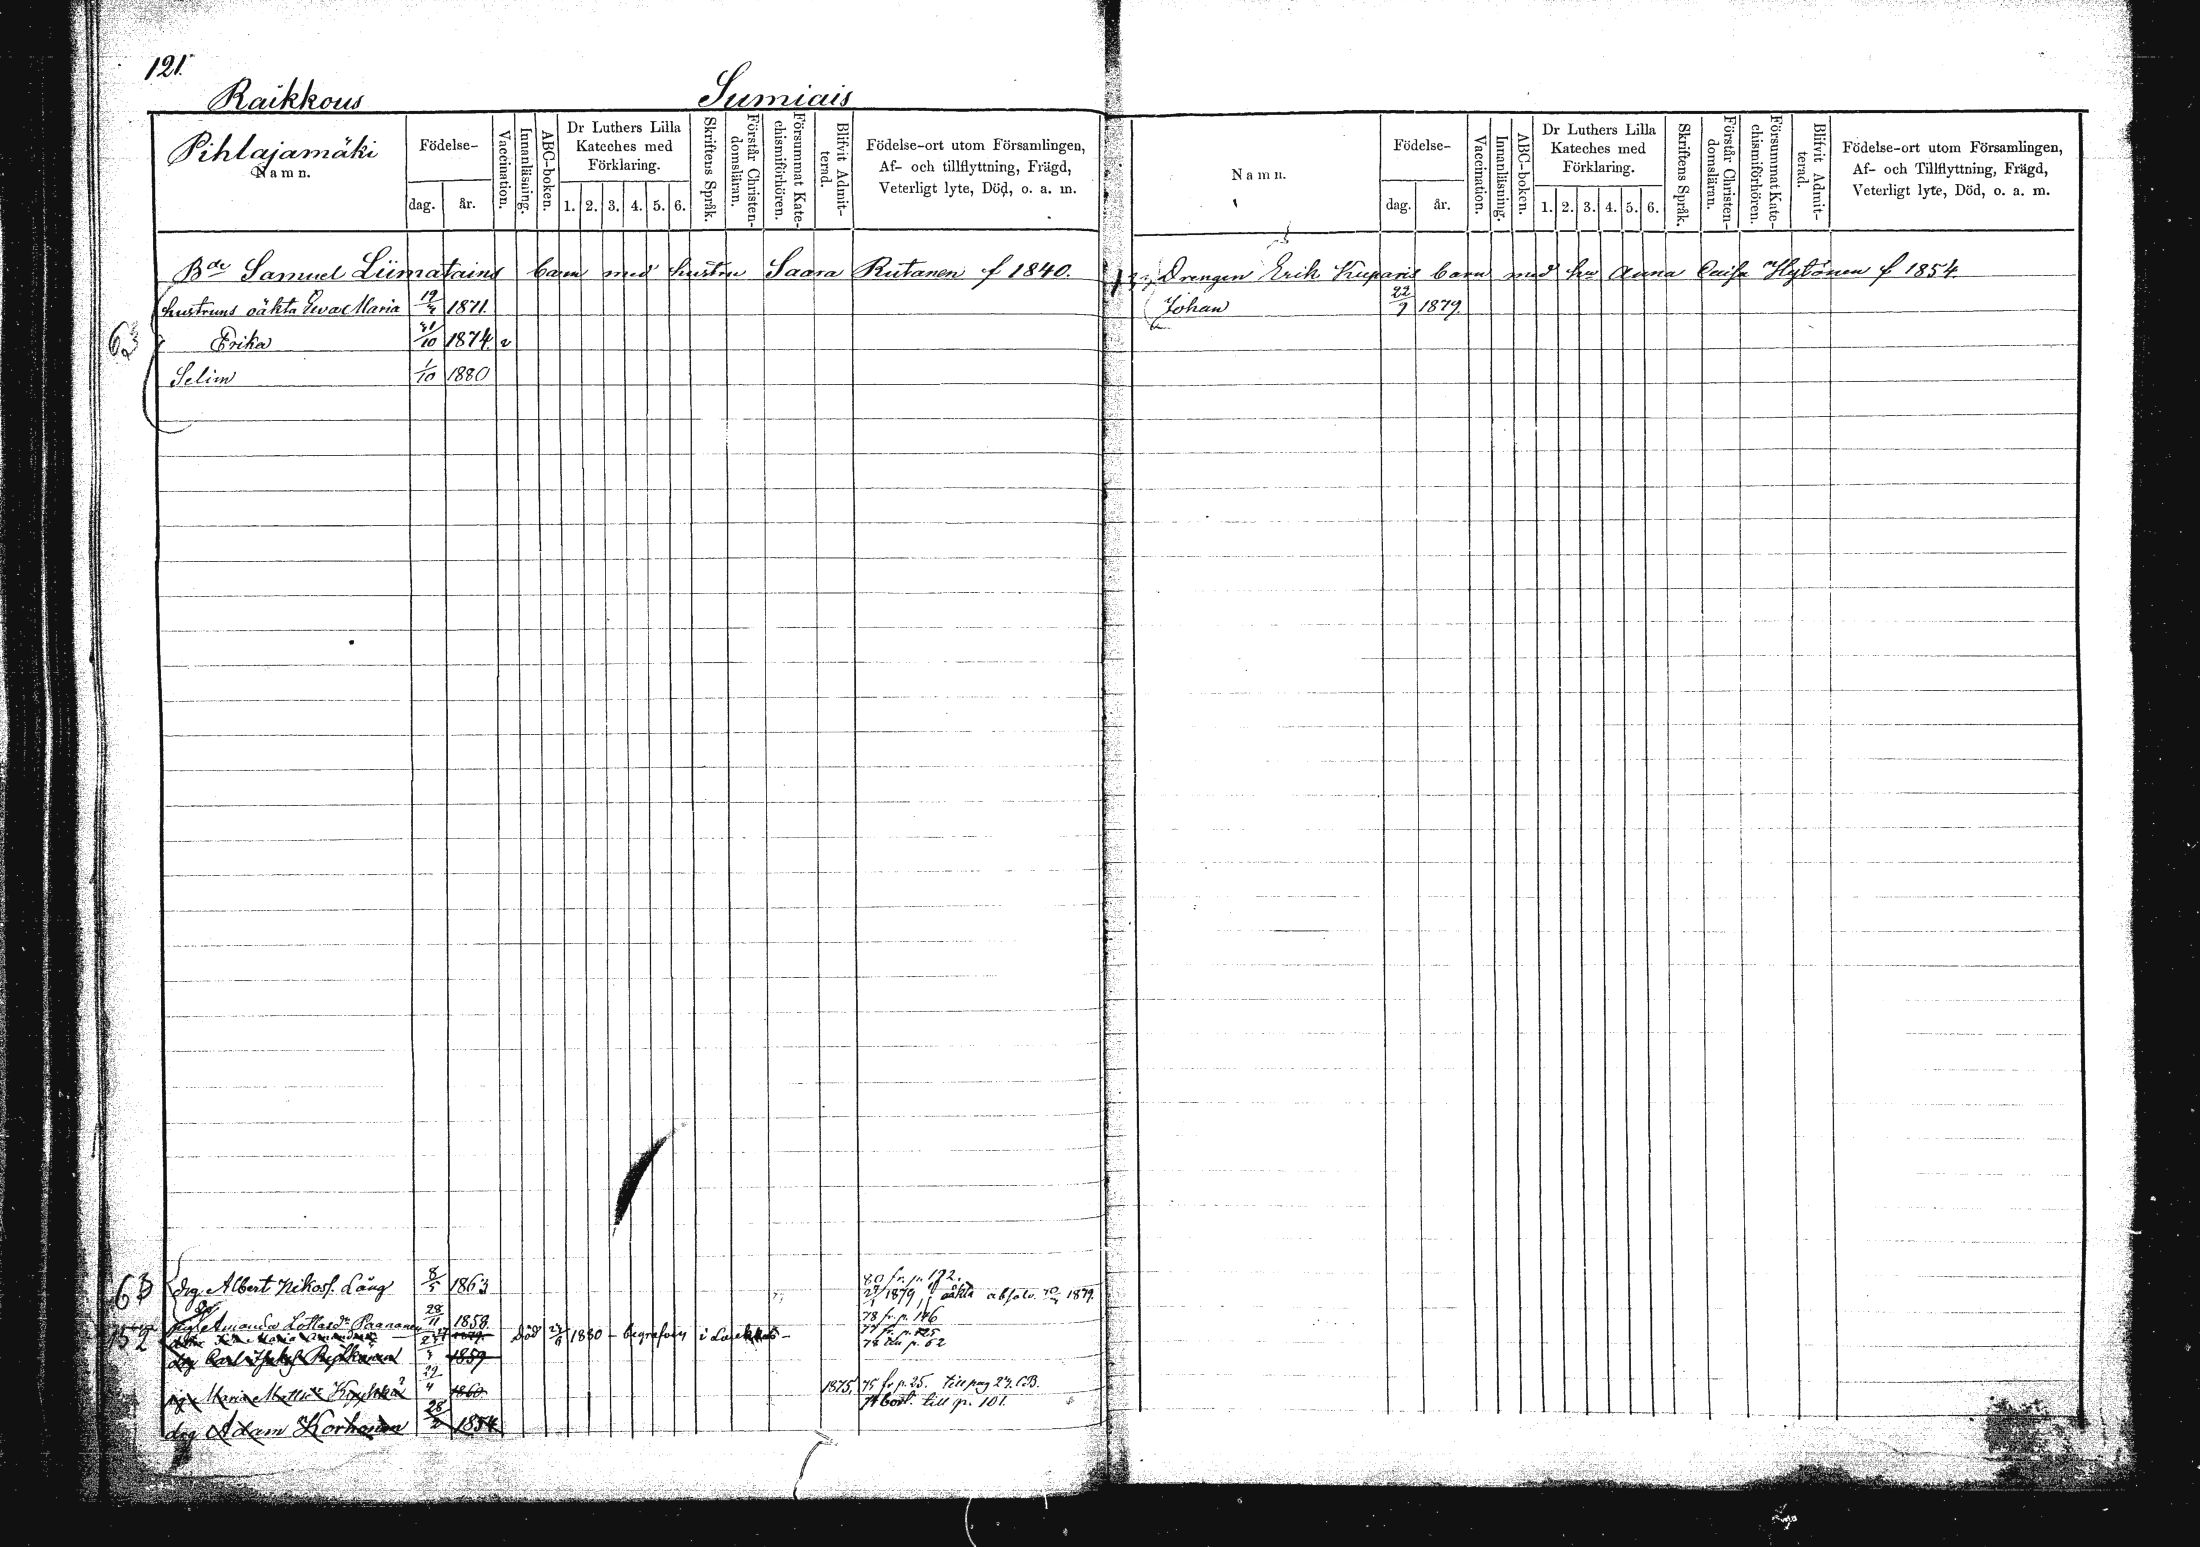 121.
Raikkous Sumiais
Pihlajamäki
Namn.
Födelse-
dag. år.
Vaccination.
Innanläsning.
ABC-boken.
Dr Luthers Lilla
Kateches med
Förklaring.
1. 2. 3. 4. 5. 6.
Skriftens Språk.
Förstår Christen-
domsläran.
Försummat Kate-
chismiförhören.
Blifvit Admit-
terad.
Födelse-ort utom Församlingen,
Af- och tillflyttning, Frägd,
Veterligt lyte, Död, o. a. m.
Bde Samuel Liimatains barn med hustru Saara Rutanen f 1840.
hustruns oäkta Eva Maria 19/ 1871.
63
Erika 31/10 1874 v
Selim 1/10 1880
63 drg. Albert Nikosf. Lång 8/5 1863 80 fr. p. 172.
1879, oäkta absolv. 1879.
Amanda Lottasdr Paananen 28/11 1858. 78 fr. p. 146
152 Maria Amanda 1879. död 1880 - begrafven i -
drg Carl 1859 78 till p. 52
Maria Mattsdr 22/4 1860 1875, 75 fr p. 25. till pag 27. CB.
drg Adam Korhonen 28/2 1854 bort. till p. 101.
Namn.
Födelse-
dag. år.
Vaccination.
Innanläsning.
ABC-boken.
Dr Luthers Lilla
Kateches med
Förklaring.
1. 2. 3. 4. 5. 6.
Skriftens Språk.
Förstår Christen-
domsläran.
Försummat Kate-
chismiförhören.
Blifvit Admit-
terad.
Födelse-ort utom Församlingen,
Af- och Tillflyttning, Frägd,
Veterligt lyte, Död, o. a. m.
Drengen Erik Kuparis barn med hu Anna Caisa Hytönen f 1854.
Johan 22/9 1879.